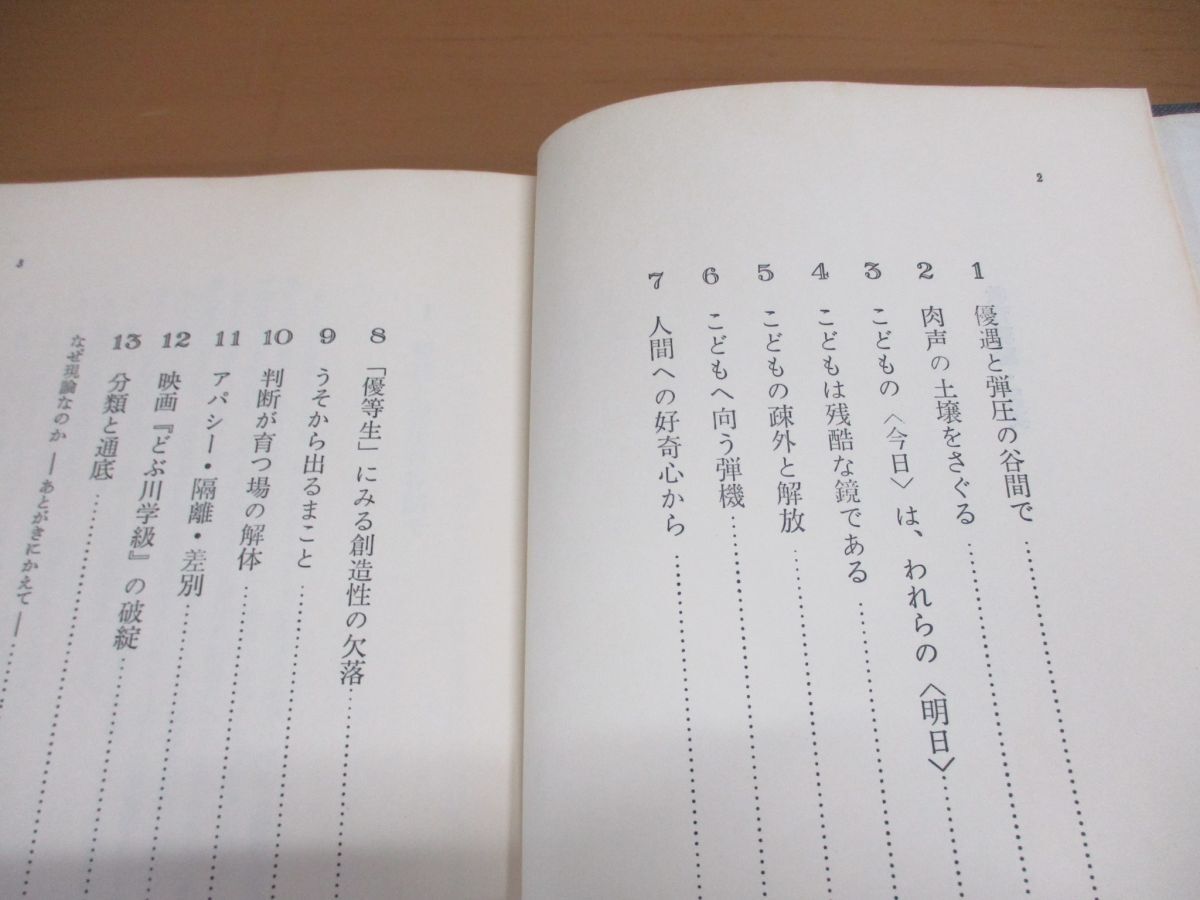 2
1 優遇と弾圧の谷間で
2 肉声の土壌をさぐる
3 こどもの〈今日〉は、われらの〈明日〉
4 こどもは残酷な鏡である
5 こどもの疎外と解放
6 こどもへ向う弾機
7 人間への好奇心から
3
8 「優等生」にみる創造性の欠落
9 うそから出るまこと
10 判断が育つ場の解体
11 アパシー・隔離・差別
12 映画『どぶ川学級』の破綻
13 分類と通底
なぜ現論なのか ―あとがきにかえて―